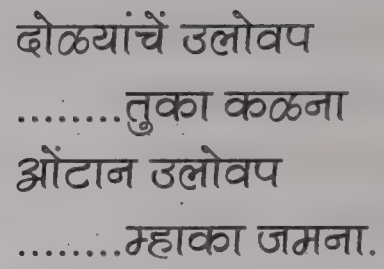 दोळयांचें उलोवप
........तुका कळना
ओंटान उलोवप
........म्हाका जमना.